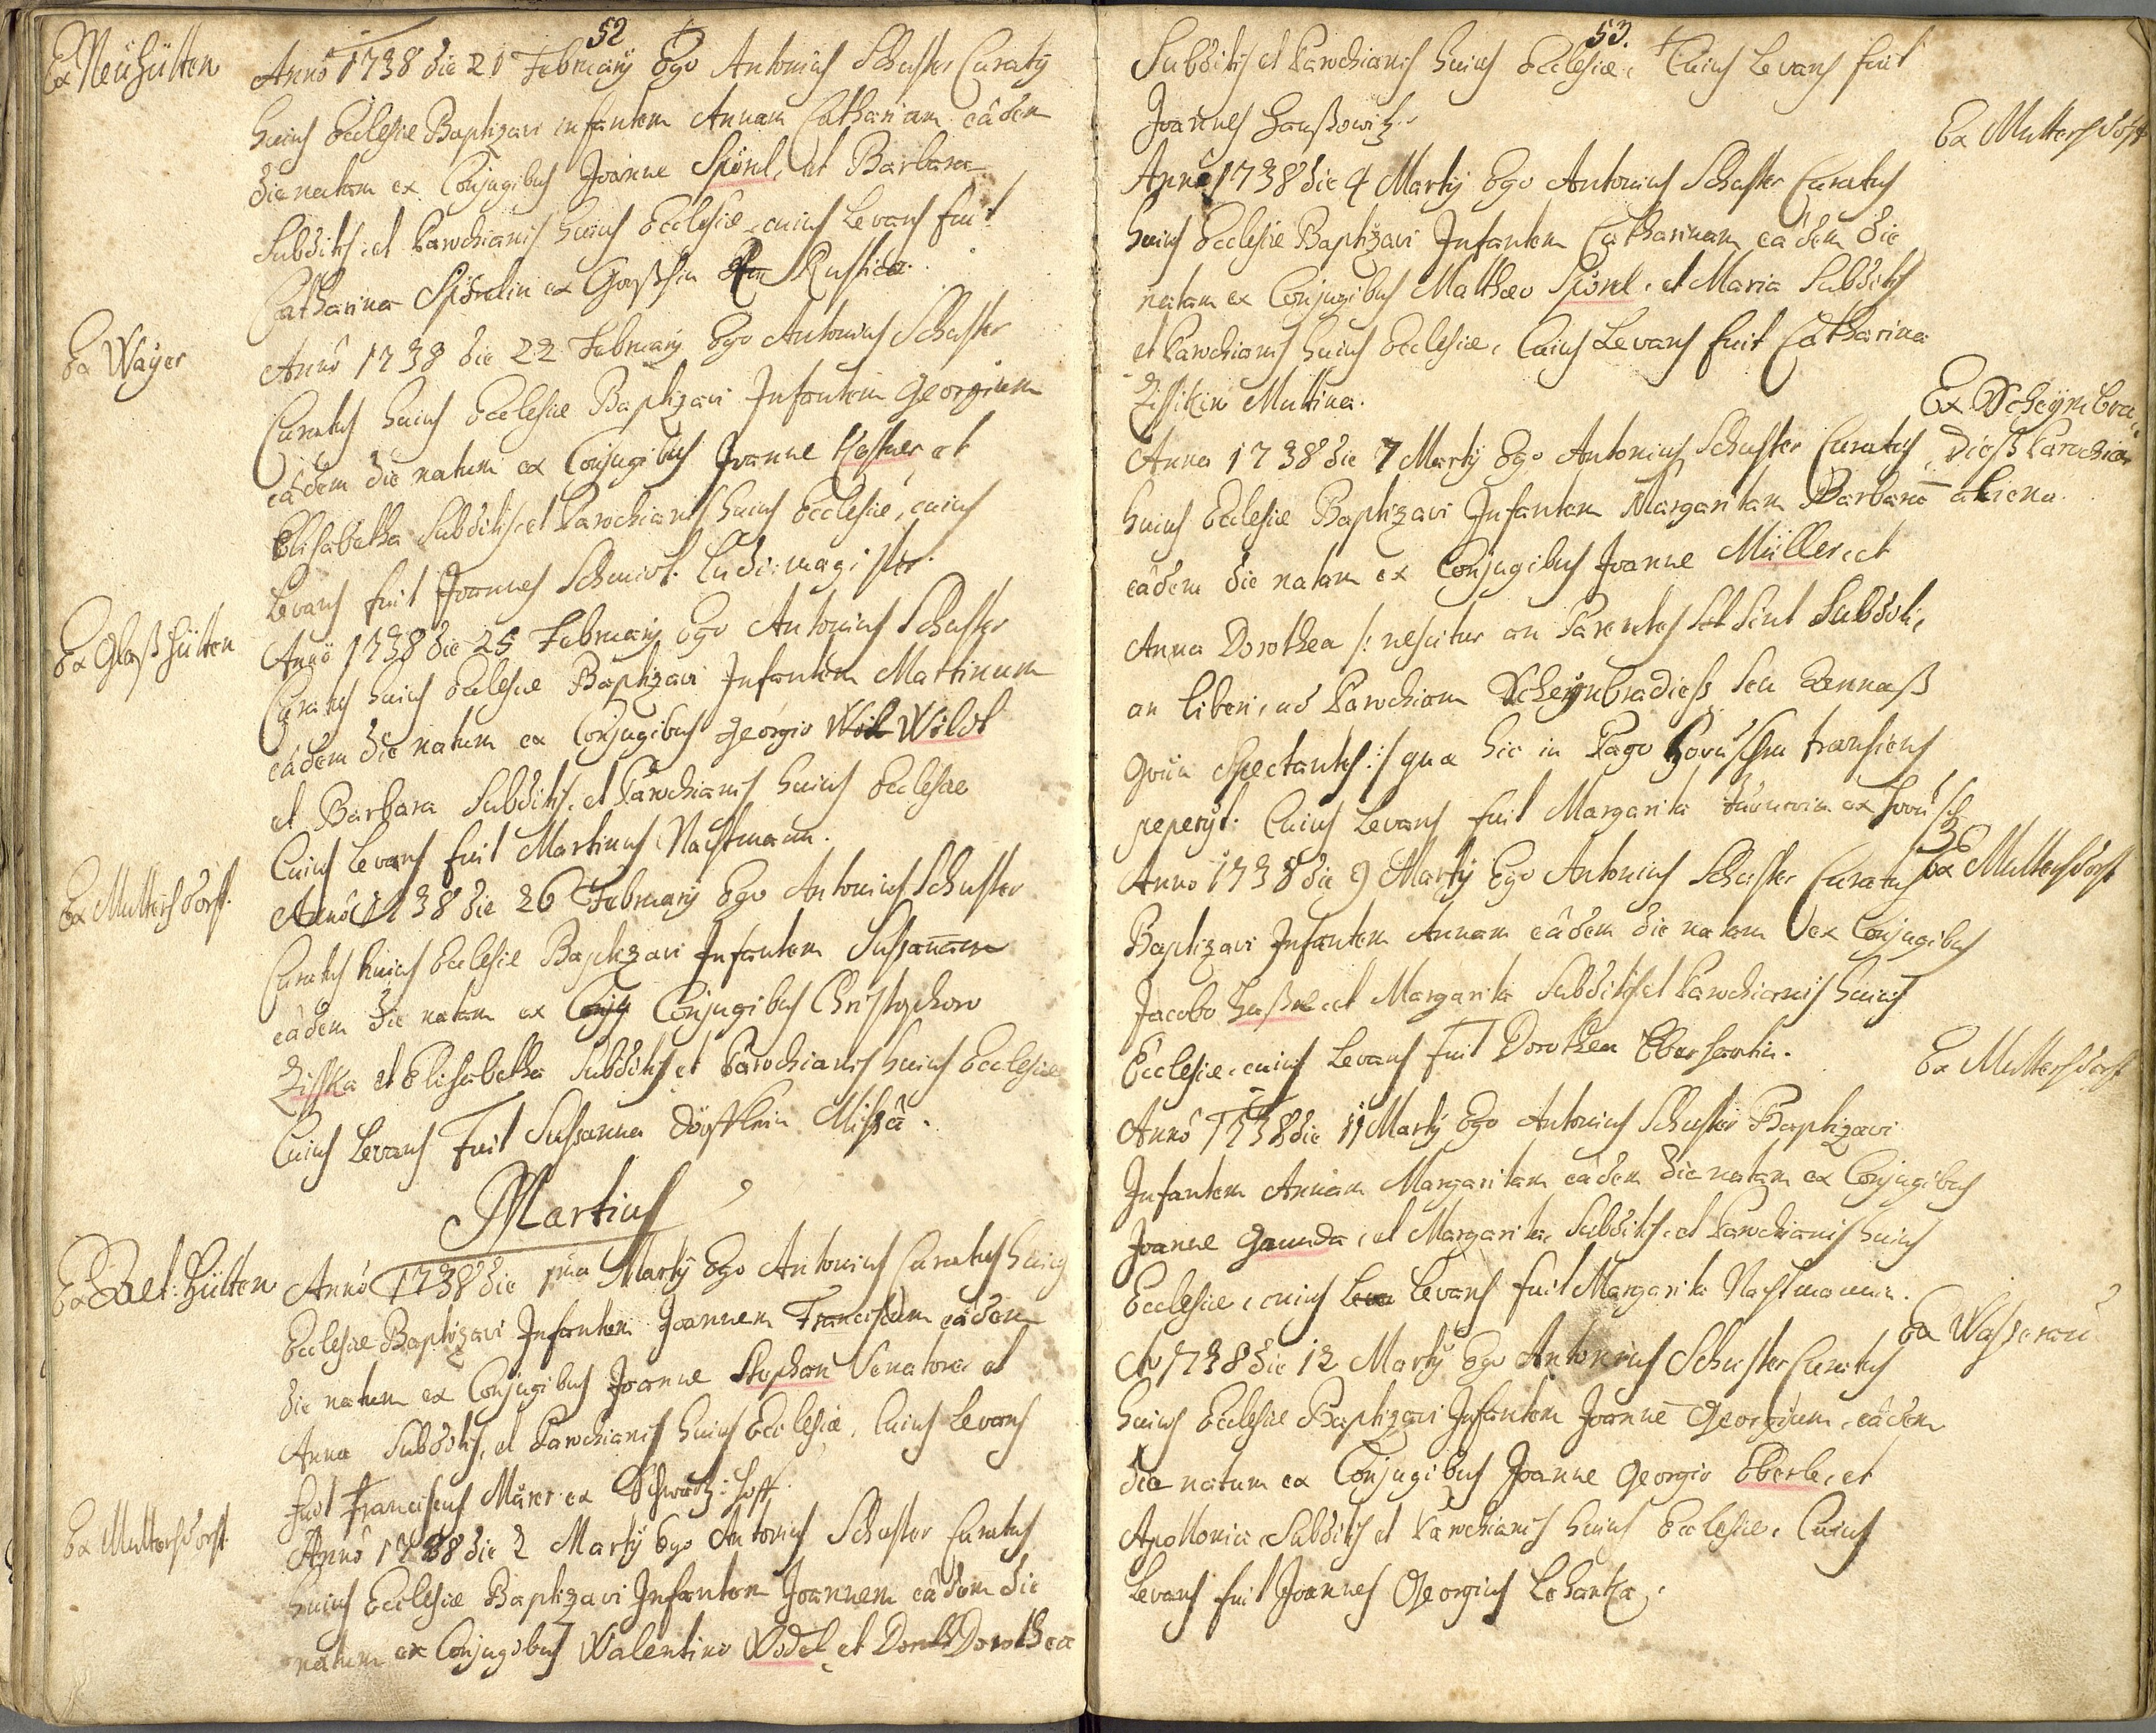 52
Ex Neühütten
Anno 1738 die 21 February Ego Antonius Schuster Curatus
huius Ecclesiae Baptizavi infantem Annam Catharinam eâdem
die natam ex Conjugibus Joanne Spörl, et Barbara
Subditis et Parochianis huius Ecclesiae, cuius Levans fuit
Catharina Spörlin ex Rustica.
Ex Wayer
Anno 1738 die 22 February Ego Antonius Schuster
Curatus huius Ecclesiae Baptizavi Infantem Georgium
eâdem die natum ex Conjugibus Joanne Kastner et
Elisabetha Subditis et Parochianis huius Ecclesiae, cuius
Levans fuit Joannes Schmidt Ludi-magister.
Ex Glaß Hütten
Anno 1738 die 25 February Ego Antonius Schuster
Curatus huius Ecclesiae Baptizavi Infantem Martinum
eâdem die natum ex Conjugibus Georgio Wildt
et Barbara Subditis, et Parochianis huius Ecclesiae
Cuius Levans fuit Martinus Nachtmann.
Ex Muttersdorf.
Anno 1738 die 26 February Ego Antonius Schuster
Curatus huius Ecclesiae Baptizavi Infantem Susannam
eâdem die natam ex Conjugibus Christophoro
Zisska et Elisabetha Subditis et Parochianis huius Ecclesiae
Cuius Levans Fuit Susanna
Martius
Ex Alt: Hütten
Anno 1738 die 1ma Marty Ego Antonius Curatus huius
Ecclesiae Baptizavi Infantem Joannem Franciscum eâdem
die natum ex Conjugibus Joanne Stephan Senatore et
Anna Subditis, et Parochianis huius Ecclesiae, Cuius Levans
fuit Franciscus ex Schwartz: Hoff.
Ex Muttersdorf.
Anno 1738 die 2 Marty Ego Antonius Schuster Curatus
huius Ecclesiae Baptizavi Infantem Joannem eâdem die
natum ex Conjugibus Valentino Vodel, et Dorothea
53.
Subditis et Parochianis huius Ecclesiae. Cuius Levans fuit
Joannes
Ex Muttersdorf
Anno 1738 die 4 Marty Ego Antonius Schuster Curatus
huius Ecclesiae Baptizavi Infantem Catharinam eâdem die
natam ex Conjugibus Mathaeo Spörl, et Maria Subditis
et Parochianis huius Ecclesiae, Cuius Levans fuit Catharina
Zisskin
Anno 1738 die 7 Marty Ego Antonius Schuster Curatus
huius Ecclesiae Baptizavi Infantem Margaritam Barbaram
eâdem die natam ex Conjugibus Joanne Müller, et
Anna Dorothea /: nescitur an Parentes sint Subditi,
an liberi, ad Parochiam seu
spectantes :/ quae hic in Pago transiens
peperyt. Cuius Levans fuit Margarita
Ex Muttersdorf
Anno 1738 die 9 Marty Ego Antonius Schuster Curatus
Baptizavi Infantem Annam eâdem die natam ex Conjugibus
Jacobo et Margarita Subditis et Parochianis huius
Ecclesiae, cuius Levans fuit Dorothea
Ex Muttersdorf
Anno 1738 die 11 Marty Ego Antonius Schuster Baptizavi
Infantem Annam Margaritam eâdem die natam ex Conjugibus
Joanne Gaunda, et Margarita, Subditis et Parochianis huius
Ecclesiae, cuius Levans fuit Margarita Nachtmannin.
Ex Wasserau
Ao 1738 die 12 Marty Ego Antonius Schuster Curatus
huius Ecclesiae Baptizavi Infantem Joannem Georgium, eâdem
die natum ex Conjugibus Joanne Georgio Eberle, et
Apollonia Subditis et Parochianis huius Ecclesiae. Cuius
Levans fuit Joannes Georgius